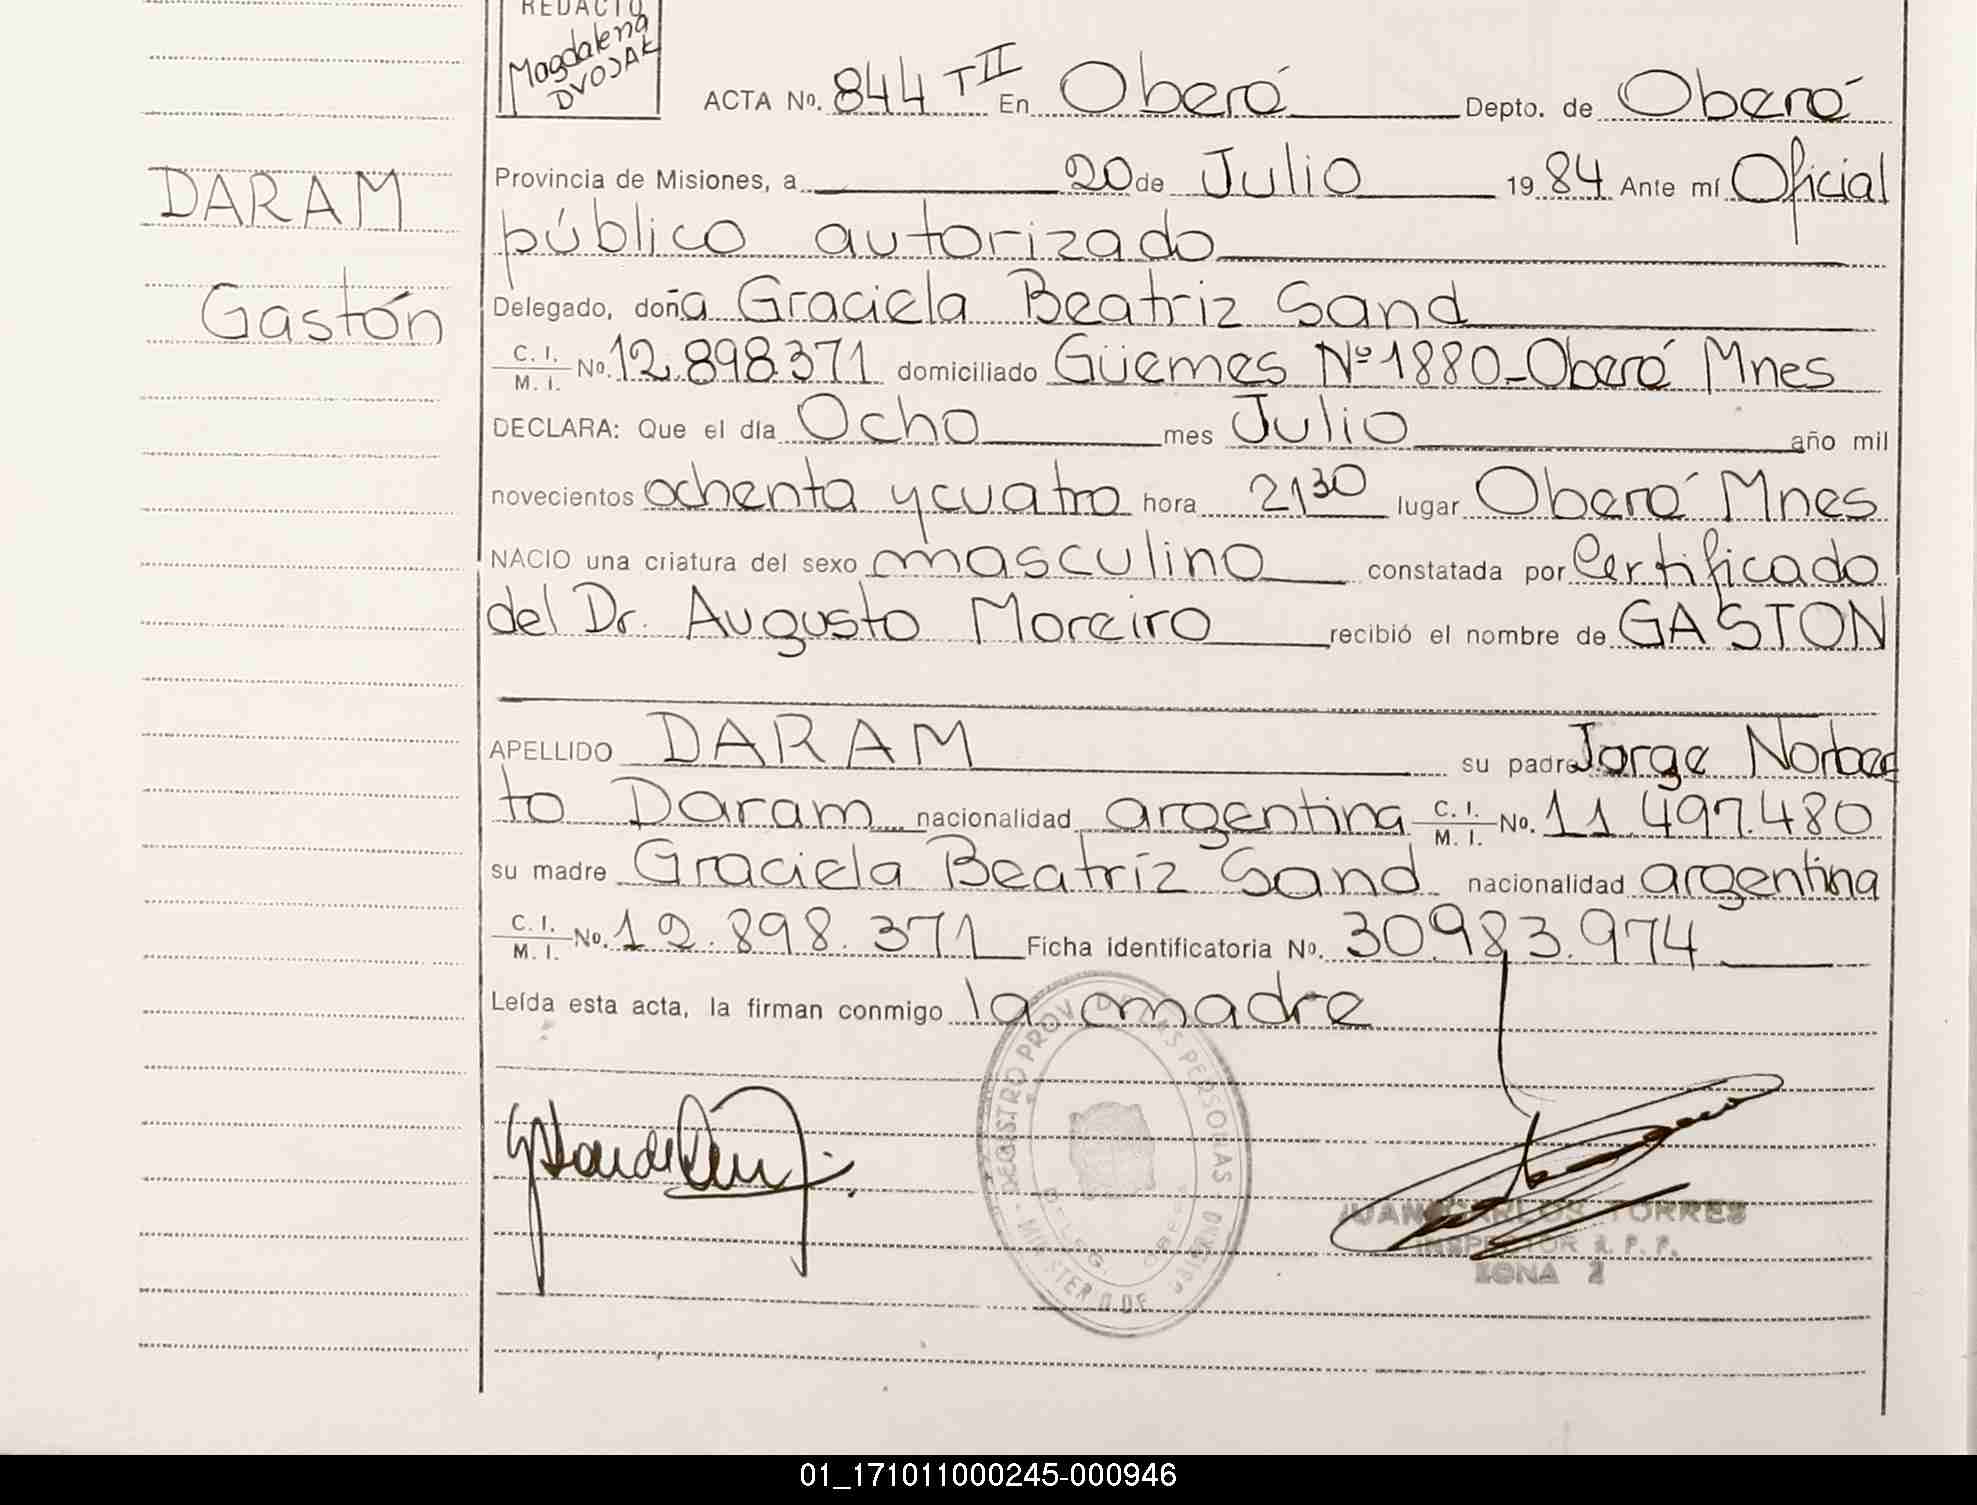 REDACTO
Magdalena
DVOJAK
ACTA No. 844 TII En Oberá Depto. de Oberá
DARAM
Gastón
Provincia de Misiones, a 20 de Julio 19 84 Ante mí Oficial
público autorizado
Delegado, doña Graciela Beatriz Sand
C. I. / M. I. No. 12.898.371 domiciliado Güemes Nº 1880-Oberá Mnes
DECLARA: Que el día Ocho mes Julio año mil
novecientos ochenta y cuatro hora 21 30 lugar Oberá Mnes
NACIO una criatura del sexo masculino constatada por Certificado
del Dr. Augusto Moreiro recibió el nombre de GASTON
APELLIDO DARAM su padre Jorge Norber
to Daram nacionalidad argentina C. I. / M. I. No. 11.497.480
su madre Graciela Beatriz Sand nacionalidad argentina
C. I. / M. I. No. 12.898.371 Ficha identificatoria No. 30.983.974
Leída esta acta, la firman conmigo la madre
REGISTRO PROV. DE LAS PERSONAS
MINISTERIO DE GOBIERNO
DELEG. OBERA
JUAN CARLOS TORRES
INSPECTOR R. P. P.
ZONA 2
01_171011000245-000946